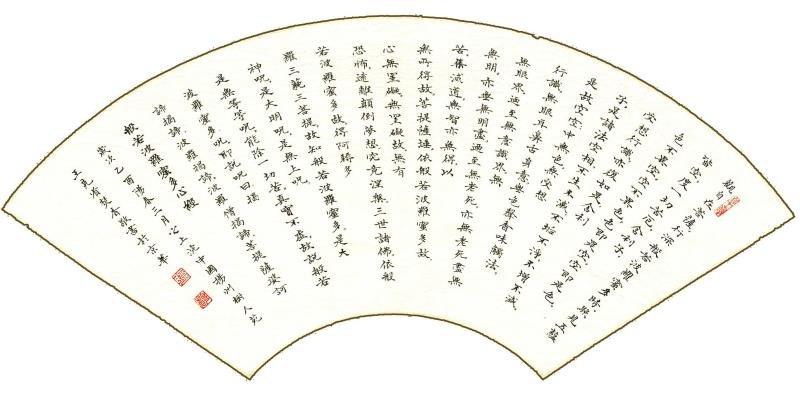 觀自在菩薩行深般若波羅蜜多時照見五蘊
皆空度一切苦厄舍利子
色不異空空不異色色即是空空即是色
受想行識亦復如是舍利
子是諸法空相不生不滅不垢不淨不增不減
是故空中無色無受想
行識無眼耳鼻舌身意無色聲香味觸法
無眼界迺至無意識界無
無明亦無無明盡迺至無老死亦無老死盡無
苦集滅道無智亦無得以
無所得故菩提薩埵依般若波羅蜜多故
心無罣礙無罣礙故無有
恐怖遠離顛倒夢想究竟涅槃三世諸佛依般
若波羅蜜多故得阿耨多
羅三藐三菩提故知般若波羅蜜多是大
神咒是大明咒是無上咒
是無等等咒能除一切苦真實不虛故說般若
波羅蜜多咒即說咒曰揭
諦揭諦波羅揭諦波羅僧揭諦菩提薩婆訶
般若波羅蜜多心經
歲次乙酉陽春三月之上浣中國揚州樹人苑
王克省焚香敬書於京華